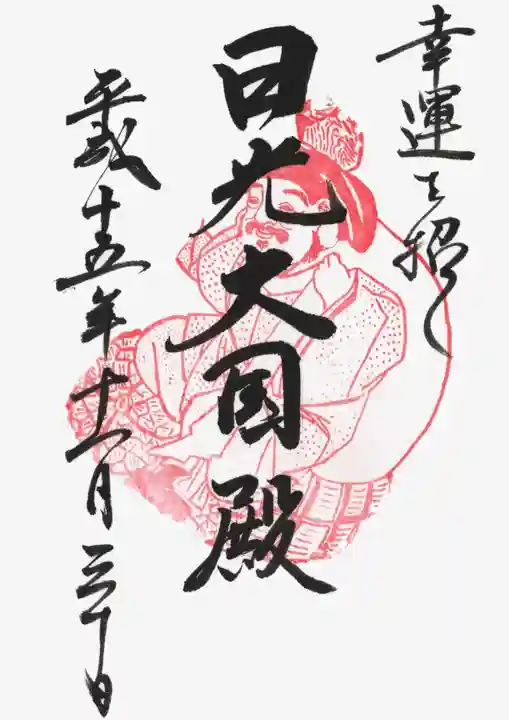 幸運を招く
日光大国殿
平成十五年十一月三十日